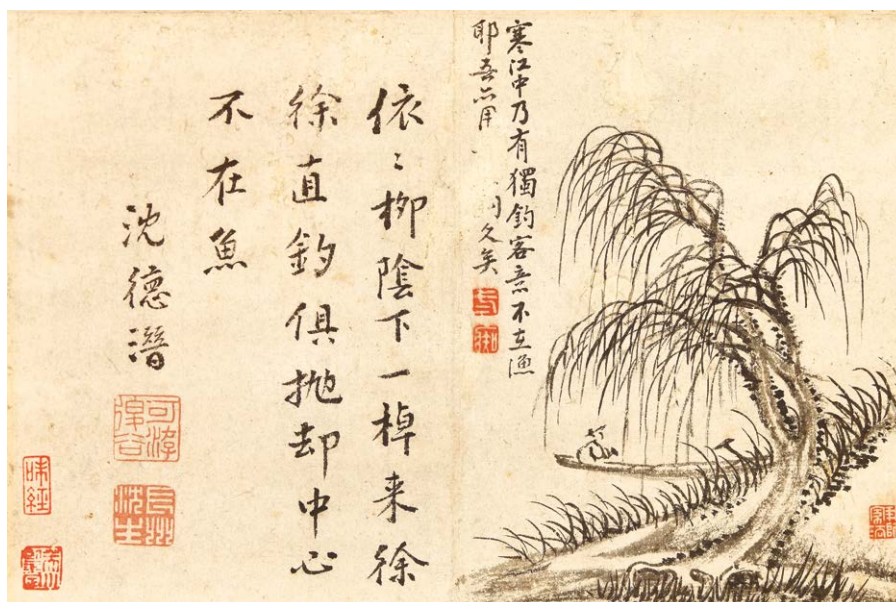 寒江中乃有獨釣客意不在漁
耶吾亦用久矣
依〻柳陰下一棹来徐
徐直釣俱抛却中心
不在魚
沈德潛
長州沈生
味經